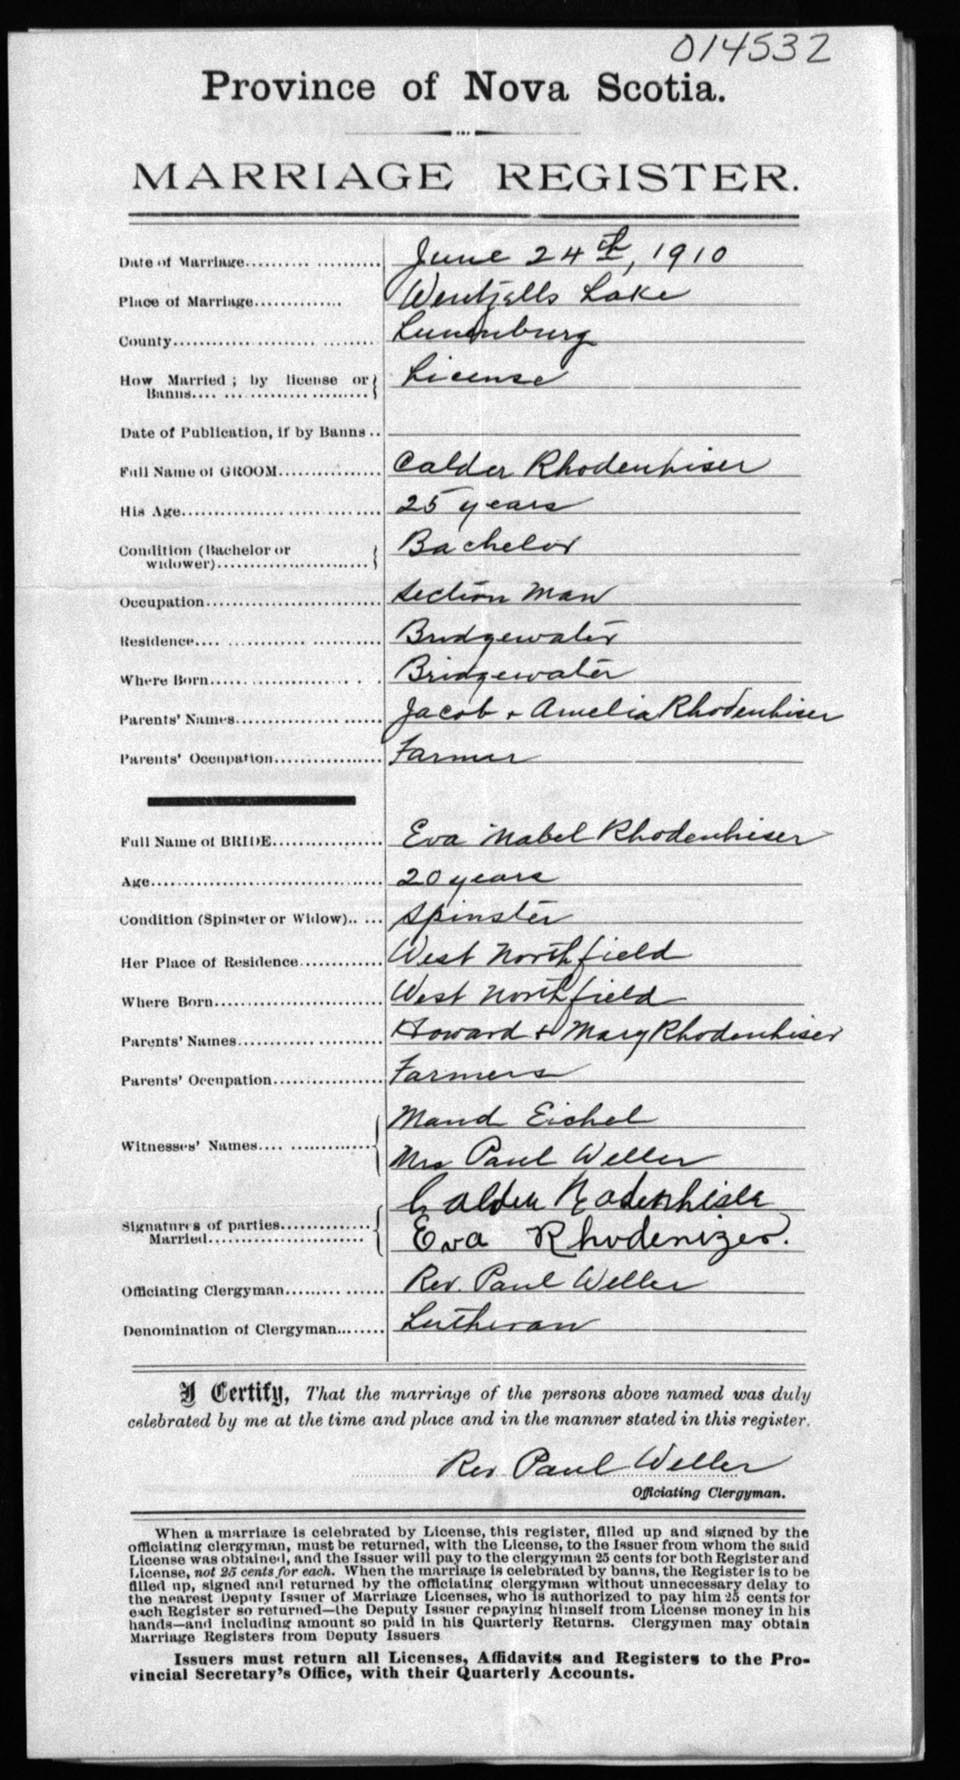 014532
Province of Nova Scotia.
MARRIAGE REGISTER.
Date of Marriage.......... ........... June 24th, 1910
Place of Marriage.............. Wentzells Lake
County............ ........ ........ Lunenburg
How Married ; by license or License
Banns.... ... ........... .........
Date of Publication, if by Banns ..
Full Name of GROOM................ Calder Rhodenhiser
His Age................ ..... .......... 25 years
Condition (Bachelor or Bachelor
widower)........................
Occupation............................ Section Man
Residence.... ........... ........... Bridgewater
Where Born..... ............. . . . Bridgewater
Parents' Names................. ...... Jacob + Amelia Rhodenhiser
Parents' Occupation................. Farmer
Full Name of BRIDE................. Eva Mabel Rhodenhiser
Age..................................... 20 years
Condition (Spinster or Widow).. .... Spinster
Her Place of Residence............. West Northfield
Where Born........................... West Northfield
Parents' Names............ .......... Howard + Mary Rhodenhiser
Parents' Occupation................. Farmers
Maud Eichel
Witnesses' Names.... ..............
Mrs Paul Weller
Calder Rodenhisla
Signatures of parties..............
Married......................... Eva Rhodenizer.
Officiating Clergyman......... ...... Rev. Paul Weller
Denomination of Clergyman........ Lutheran
I Certify, That the marriage of the persons above named was duly
celebrated by me at the time and place and in the manner stated in this register.
Rev Paul Weller
Officiating Clergyman.
When a marriage is celebrated by License, this register, filled up and signed by the
officiating clergyman, must be returned, with the License, to the Issuer from whom the said
License was obtained, and the Issuer will pay to the clergyman 25 cents for both Register and
License, not 25 cents for each. When the marriage is celebrated by banns, the Register is to be
filled up, signed and returned by the officiating clergyman without unnecessary delay to
the nearest Deputy Issuer of Marriage Licenses, who is authorized to pay him 25 cents for
each Register so returned—the Deputy Issuer repaying himself from License money in his
hands—and including amount so paid in his Quarterly Returns. Clergymen may obtain
Marriage Registers from Deputy Issuers
Issuers must return all Licenses, Affidavits and Registers to the Pro-
vincial Secretary's Office, with their Quarterly Accounts.